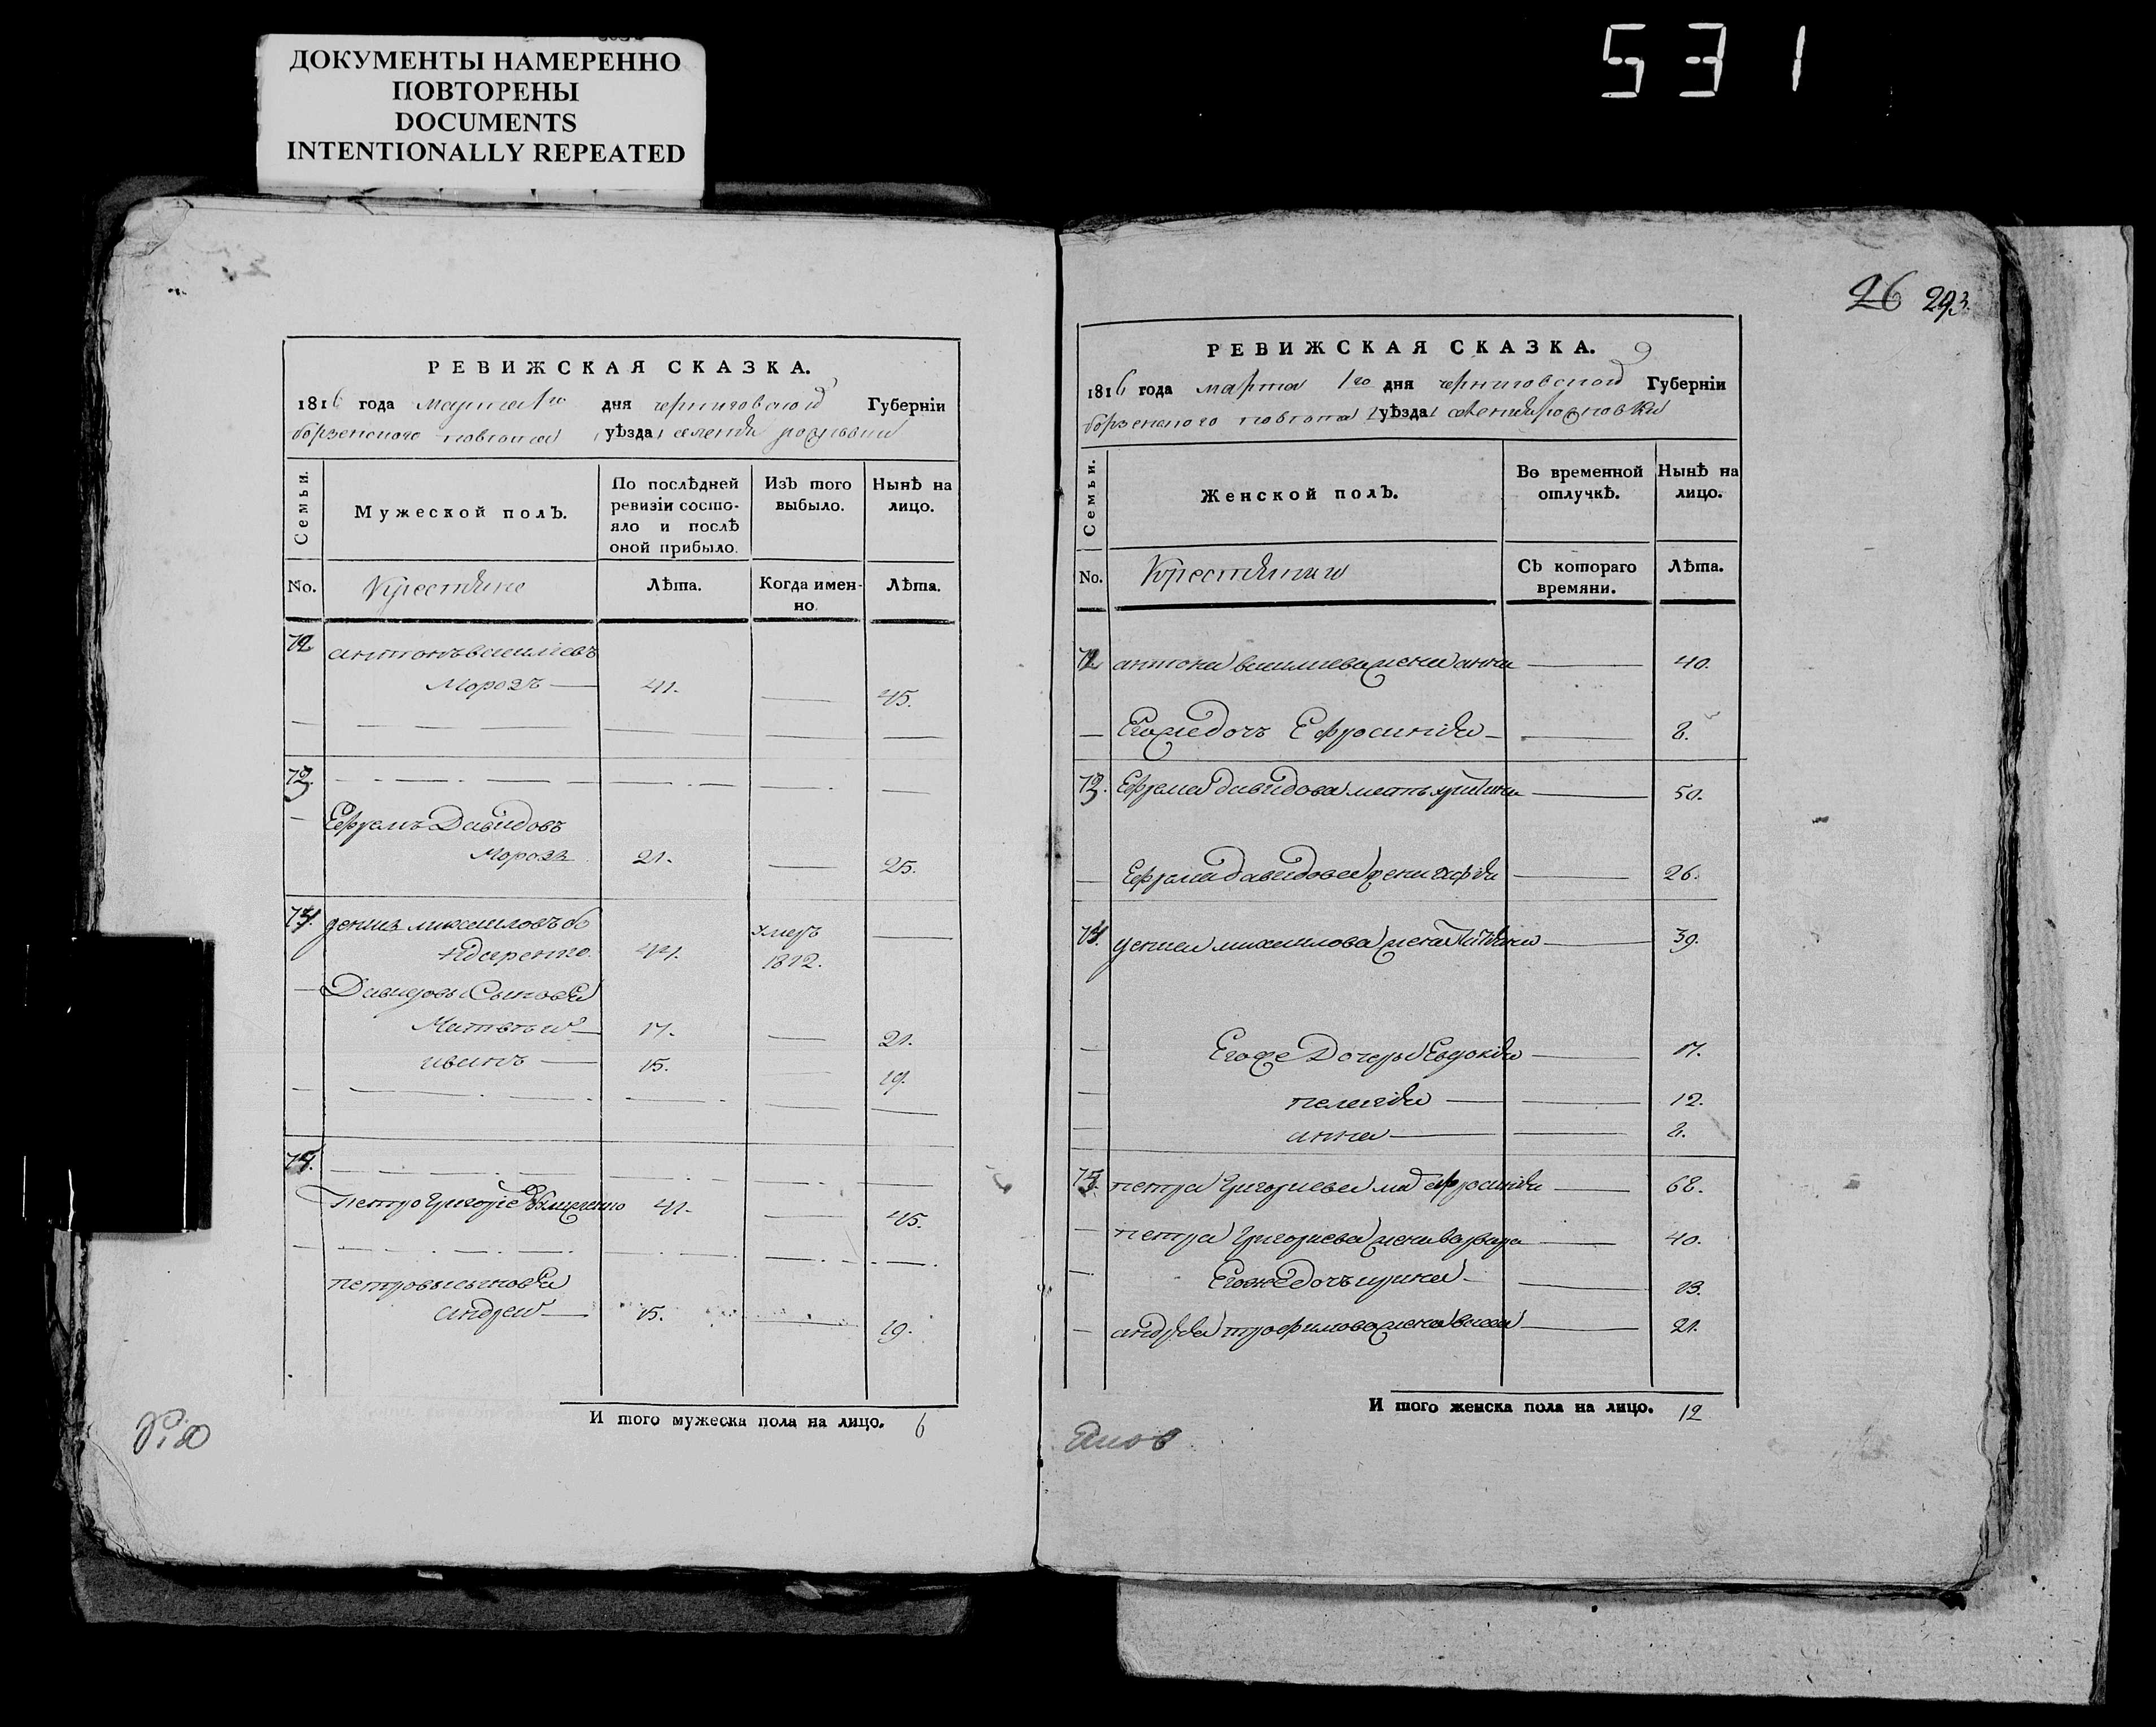 ДОКУМЕНТЫ НАМЕРЕННО
ПОВТОРЕНЫ
DOCUMENTS
INTENTIONALLY REPEATED
531
РЕВИЖСКАЯ СКАЗКА.
1816 года марта 1го дня черниговской Губерніи
борзенского повѣта уѣзда
Семьи.
Мужеской полъ.
По послѣдней ревизіи состо-яло и послѣ оной прибыло.
Изъ того выбыло.
Нынѣ на лицо.
No.
Крестяне
Лѣта.
Когда имен-но.
Лѣта.
72 антонъ василевъ
Морозъ — 41. — 45.
73.
Ефремъ Давидовъ
Морозъ 21. — 25.
74. денисъ михаиловъ
умеръ
1812.
Сыновя
Матвей — 17. — 21.
иванъ — 15. 19.
75.
петро 41. — 45.
петровы сыновя
андреи — 15. 19.
И того мужеска пола на лицо. 6
26 293.
РЕВИЖСКАЯ СКАЗКА. 9
1816 года марта 1го дня черниговской Губерніи
борзенского повѣта уѣзда
Семьи.
Женской полъ.
Во временной отлучкѣ.
Нынѣ на лицо.
No.
Крестянки
Съ котораго времяни.
Лѣта.
72 антона василиева жена анна — 40.
Его же дочъ Ефросинія — 8.
73. Ефрема давидова мать — 50.
Ефрема давидова жена — 26.
74. дениса михаилова жена — 39.
Его же Дочеры Евдокія — 17.
пелагія — 12.
анна — 8.
75. петра григориева ефросинія — 68.
петра григориева жена варвара — 40.
Его же дочъ ирина — 13.
андрея трофимова жена — 21.
И того женска пола на лицо. 12